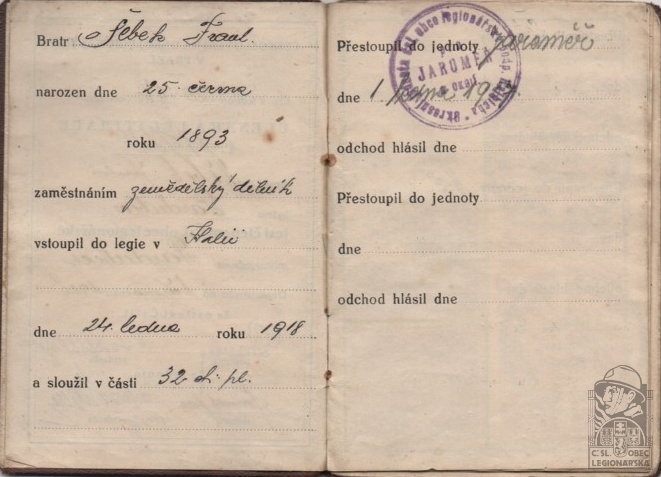 Bratr Šebek Frant.
narozen dne 25. června
roku 1893
zaměstnáním zemědělský dělník
vstoupil do legie v Italii
dne 24. ledna roku 1918
a sloužil v části 32 stř. pl.
Přestoupil do jednoty Jaroměř
dne 1 ledna
odchod hlásil dne
Přestoupil do jednoty
dne
odchod hlásil dne
obce legionářské
JAROMĚŘ
ČSL. OBEC
LEGIONÁŘSKÁ